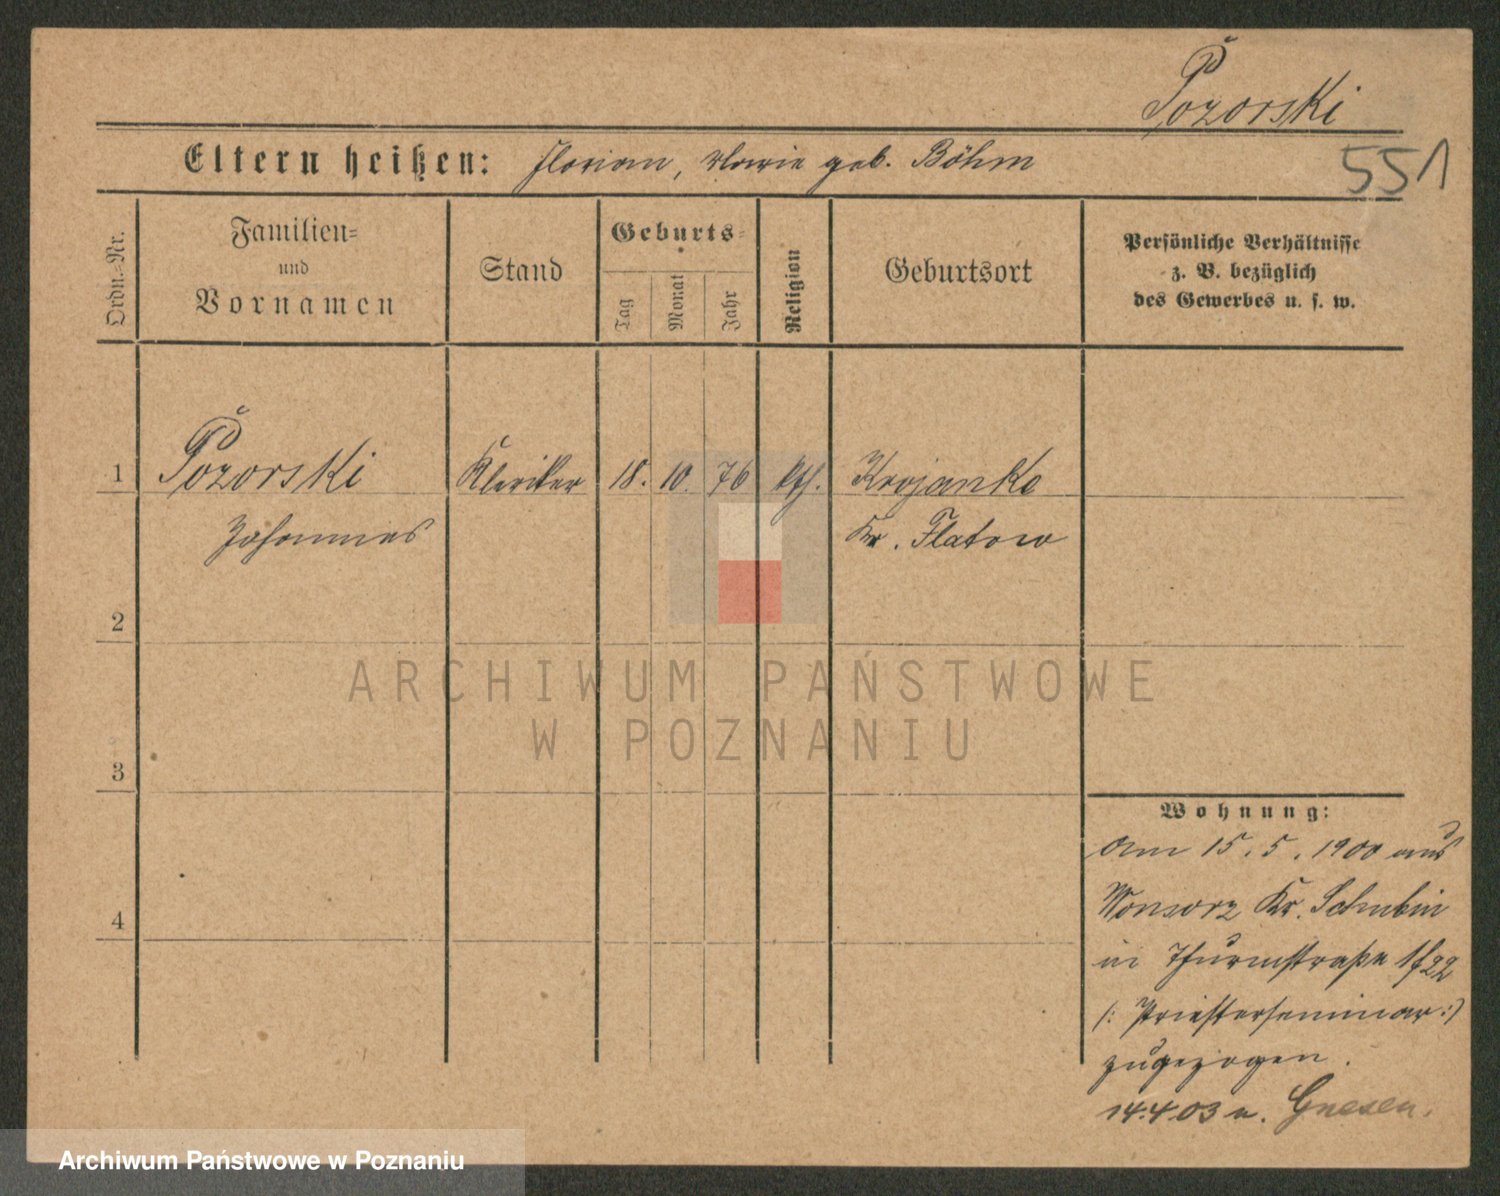 Pozorski
551
Eltern heißen: Florian, Marie geb. Böhm
Ordn.-Nr.
Familien-
und
Vornamen
Stand
Geburts-
Tag
Monat
Jahr
Religion
Geburtsort
Persönliche Verhältnisse
z. B. bezüglich
des Gewerbes u. s. w.
1 Pozorski Kleriker 18. 10. 76 kth. Krojanke
Johannes Kr. Flatow
2
ARCHIWUM PAŃSTWOWE
W POZNANIU
3
Wohnung:
Am 15. 5. 1900 aus
Wonsorz Kr. Schubin
in Thurmstraße
(: Priesterseminar :)
zugezogen.
4
14.4.03 n. Gnesen.
Archiwum Państwowe w Poznaniu